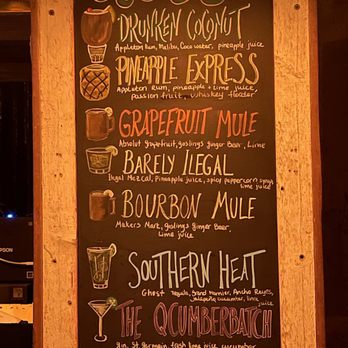 DRUNKEN COCONUT
Appleton Rum, Malibu, Coco water, pineapple juice
PINEAPPLE EXPRESS
Appleton Rum, pineapple + lime juice,
passion fruit, whiskey floater
GRAPEFRUIT MULE
Absolut grapefruit, goslings ginger Beer, Lime
BARELY ILEGAL
Ilegal Mezcal, Pineapple juice, spicy peppercorn syrup
lime juice
BOURBON MULE
Makers Mark, goslings Ginger Beer,
Lime juice
SOUTHERN HEAT
Ghost Tequila, Grand Marnier, Ancho Reyes,
Jalapeño cucumber, lime
juice
THE QCUMBERBATCH
Gin, St. Germain, fresh lime juice, cucumber
EPSON